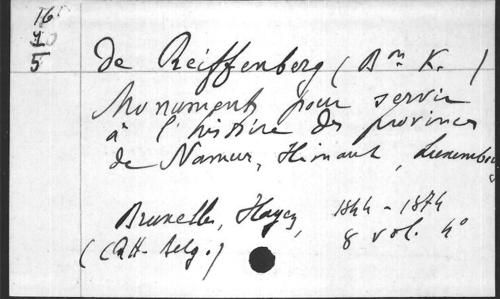 16
10
5
de Reiffenberg (Bon K. )
Monuments pour servir
à l'histoire des provinces
de Namur, Hainaut, Luxembourg
Bruxelles, Hayez, 1844 - 1874
(Coll. belg.) 8 vol. 4°